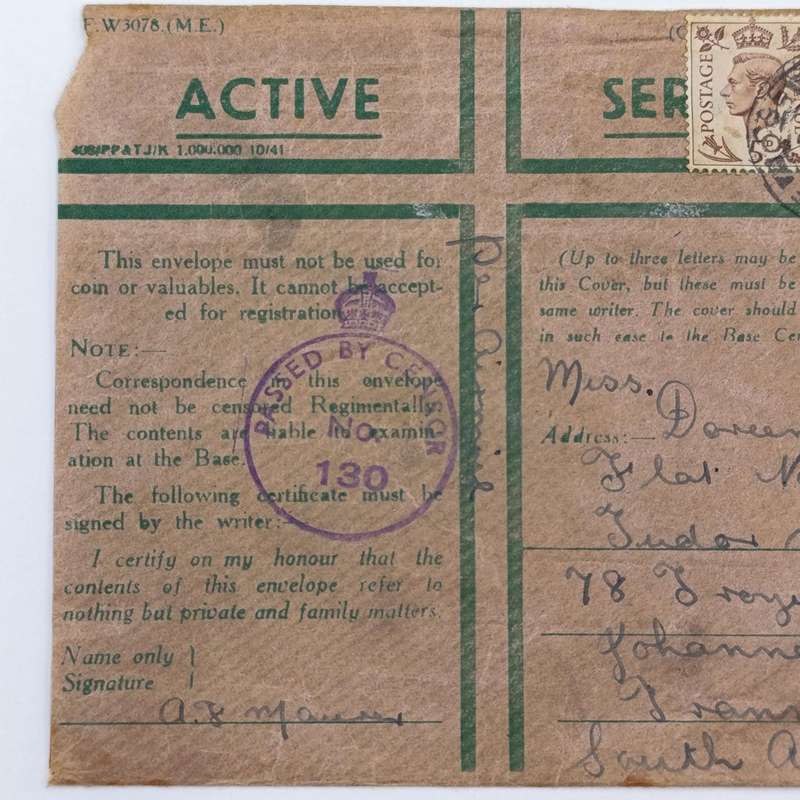 F.W3078.(M.E.)
ACTIVE
SER
408/PP&TJ/K 1.000.000 10/41
POSTAGE
This envelope must not be used for
coin or valuables. It cannot be accept-
ed for registration.
NOTE:—
Correspondence in this envelope
need not be censored Regimentally.
The contents are liable to examin-
ation at the Base.
The following certificate must be
signed by the writer:—
I certify on my honour that the
contents of this envelope refer to
nothing but private and family matters.
Name only }
Signature
A.F
PASSED BY CENSOR
No.
130
Per Airmail
(Up to three letters may be
this Cover, but these must be
same writer. The cover should
in such case to the Base Cen
Miss.
Address:— Doreen
Flat N
Tudor
78
Johanne
Trans
South A